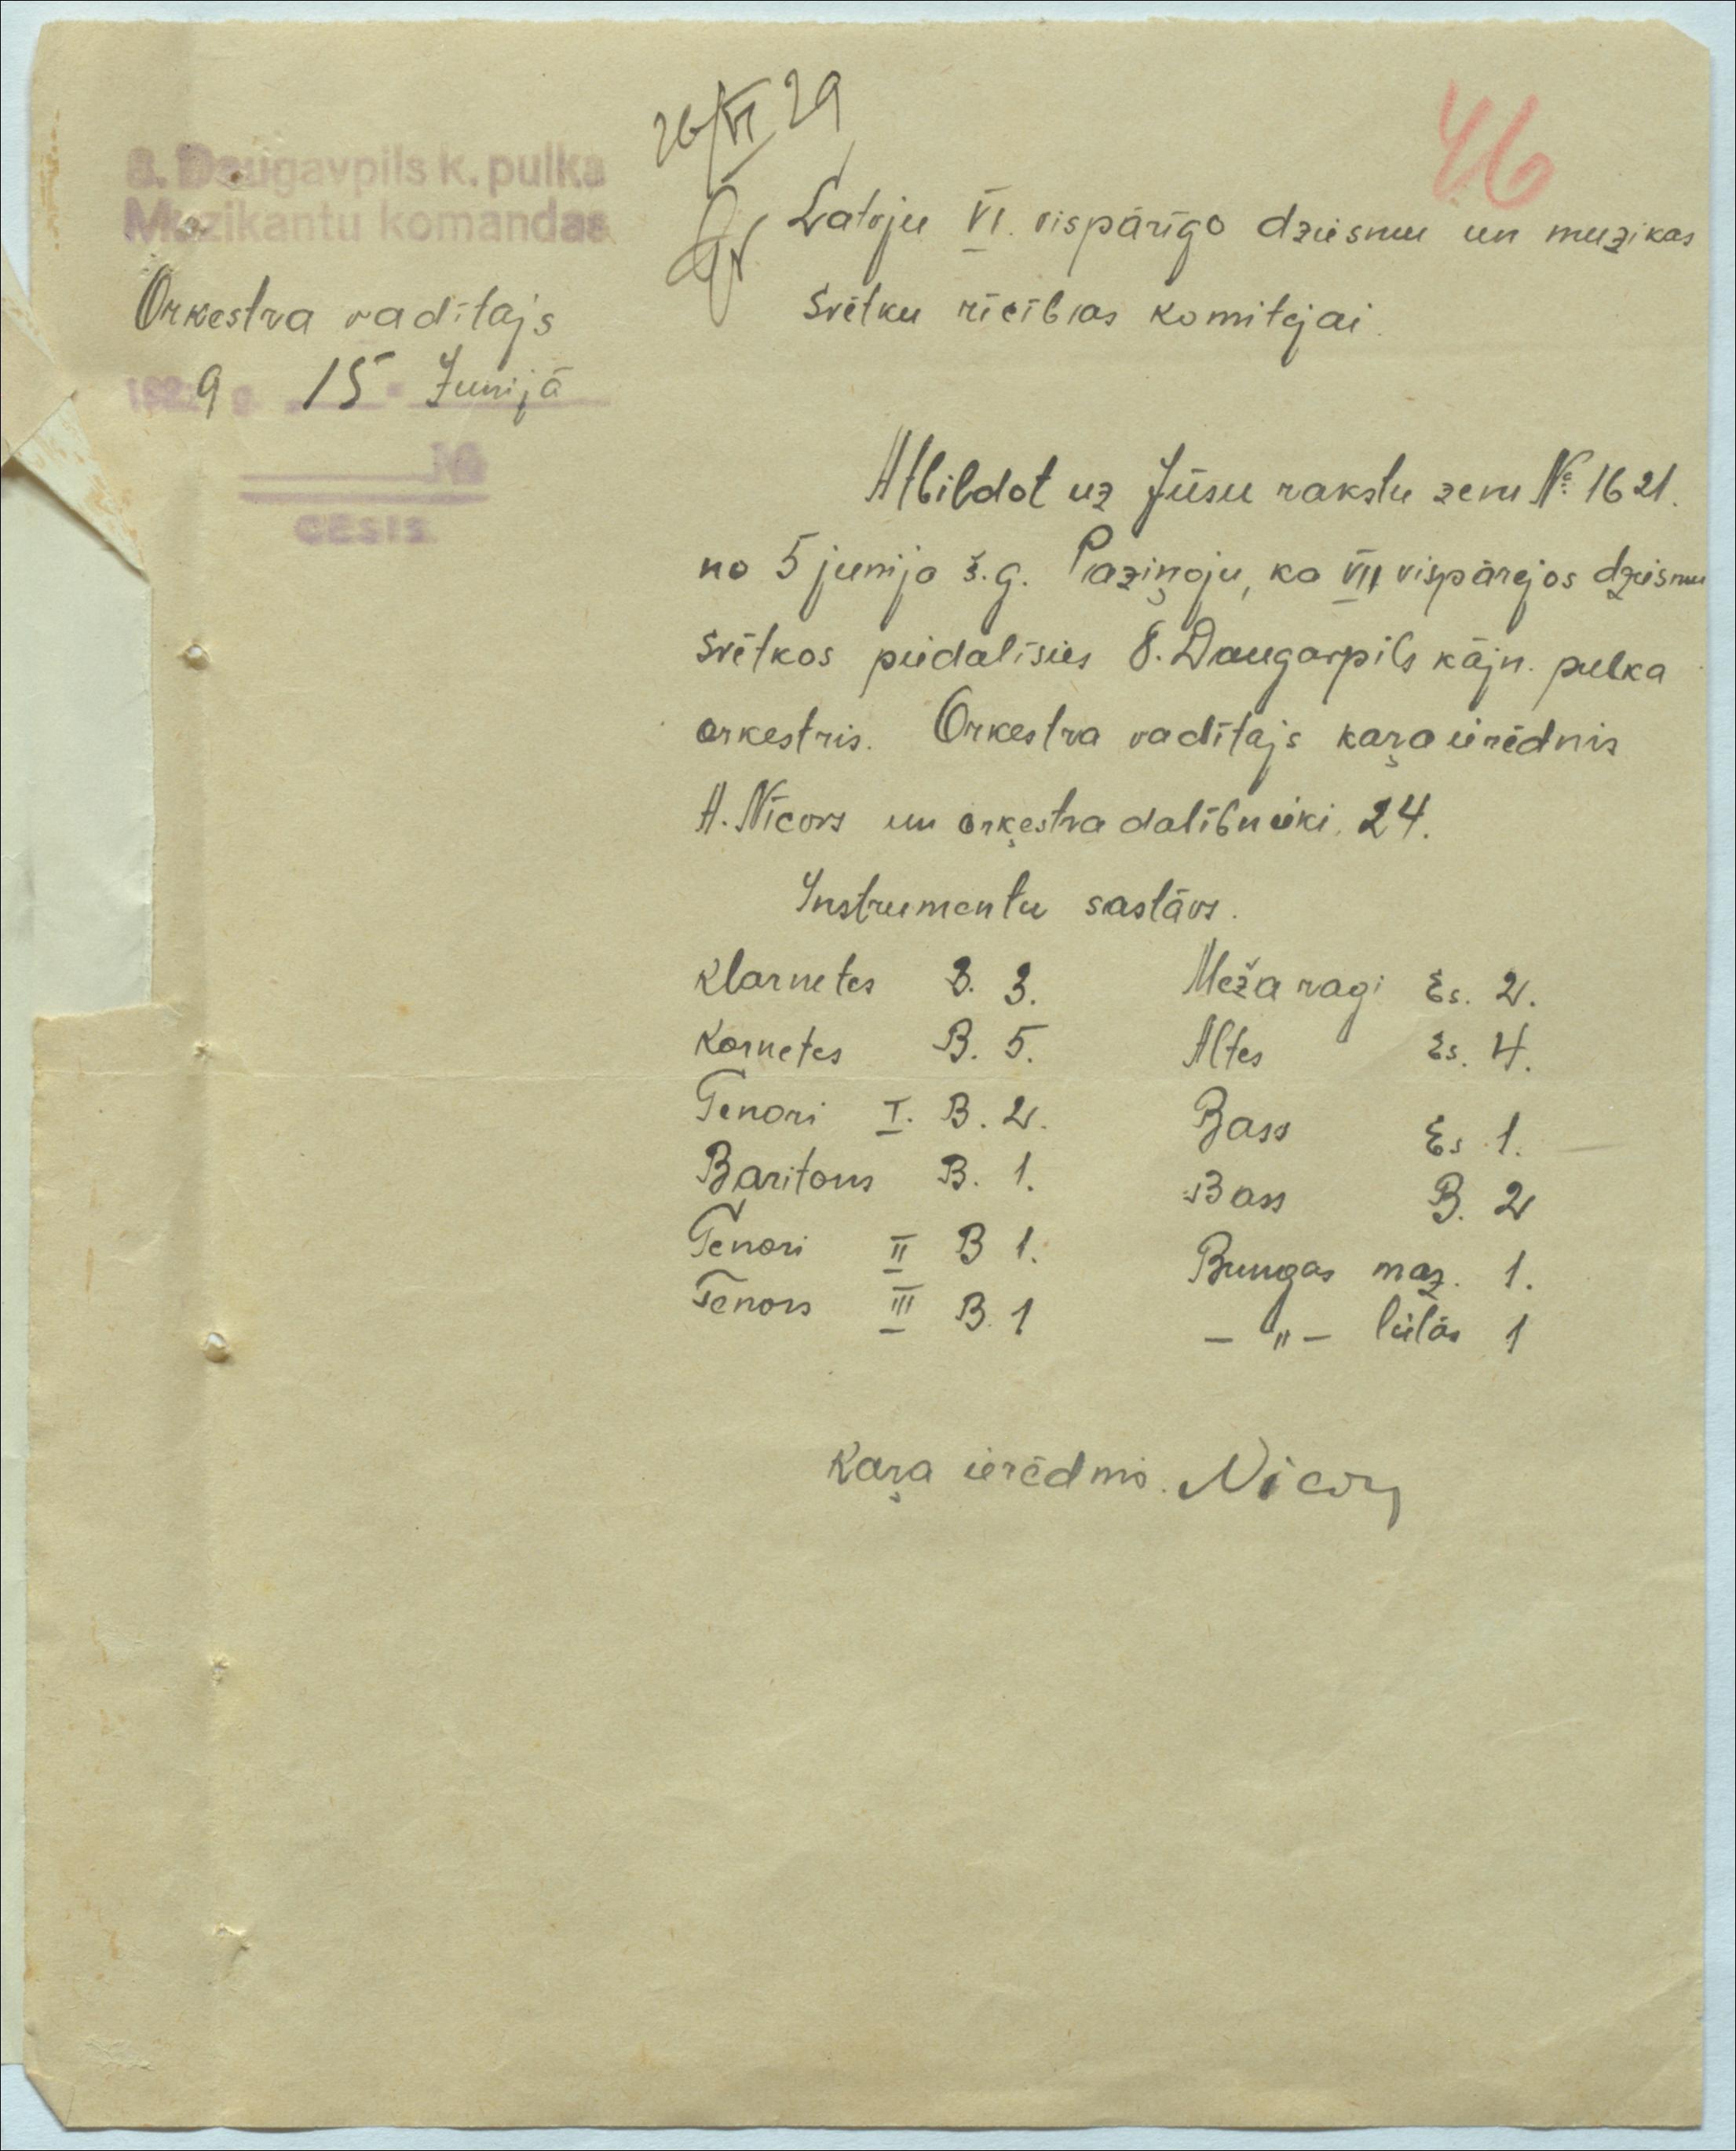 26/VI 29
46
8. Daugavpils k. pulka
Muzikantu komandas
Orkestra vadītajs
1929 g. 15 Junijā
№
CESIS
Latvju VI. vispārīgo dziesmu un muzikas
svētku rīcības komitejai.
Atbildot uz Jūsu rakstu zem № 1621.
no 5 junija š.g. Paziņoju, ka VII vispārejos dziesmu
svētkos piedalīsies 8. Daugavpils kājn. pulka
orkestris. Orkestra vadītajs kaŗa ierēdnis
A. Nīcovs un orķestra dalībnieki 24.
Instrumentu sastāvs.
Klarnetes B. 3. Meža ragi Es. 2.
Kornetes B. 5. Altes Es. 4.
Tenori I. B. 2. Bass Es 1.
Baritons B. 1. Bass B. 2
Tenori II B 1. Bungas maz. 1.
Tenors III B. 1 – " – lielās 1
Kaŗa ierēdnis.